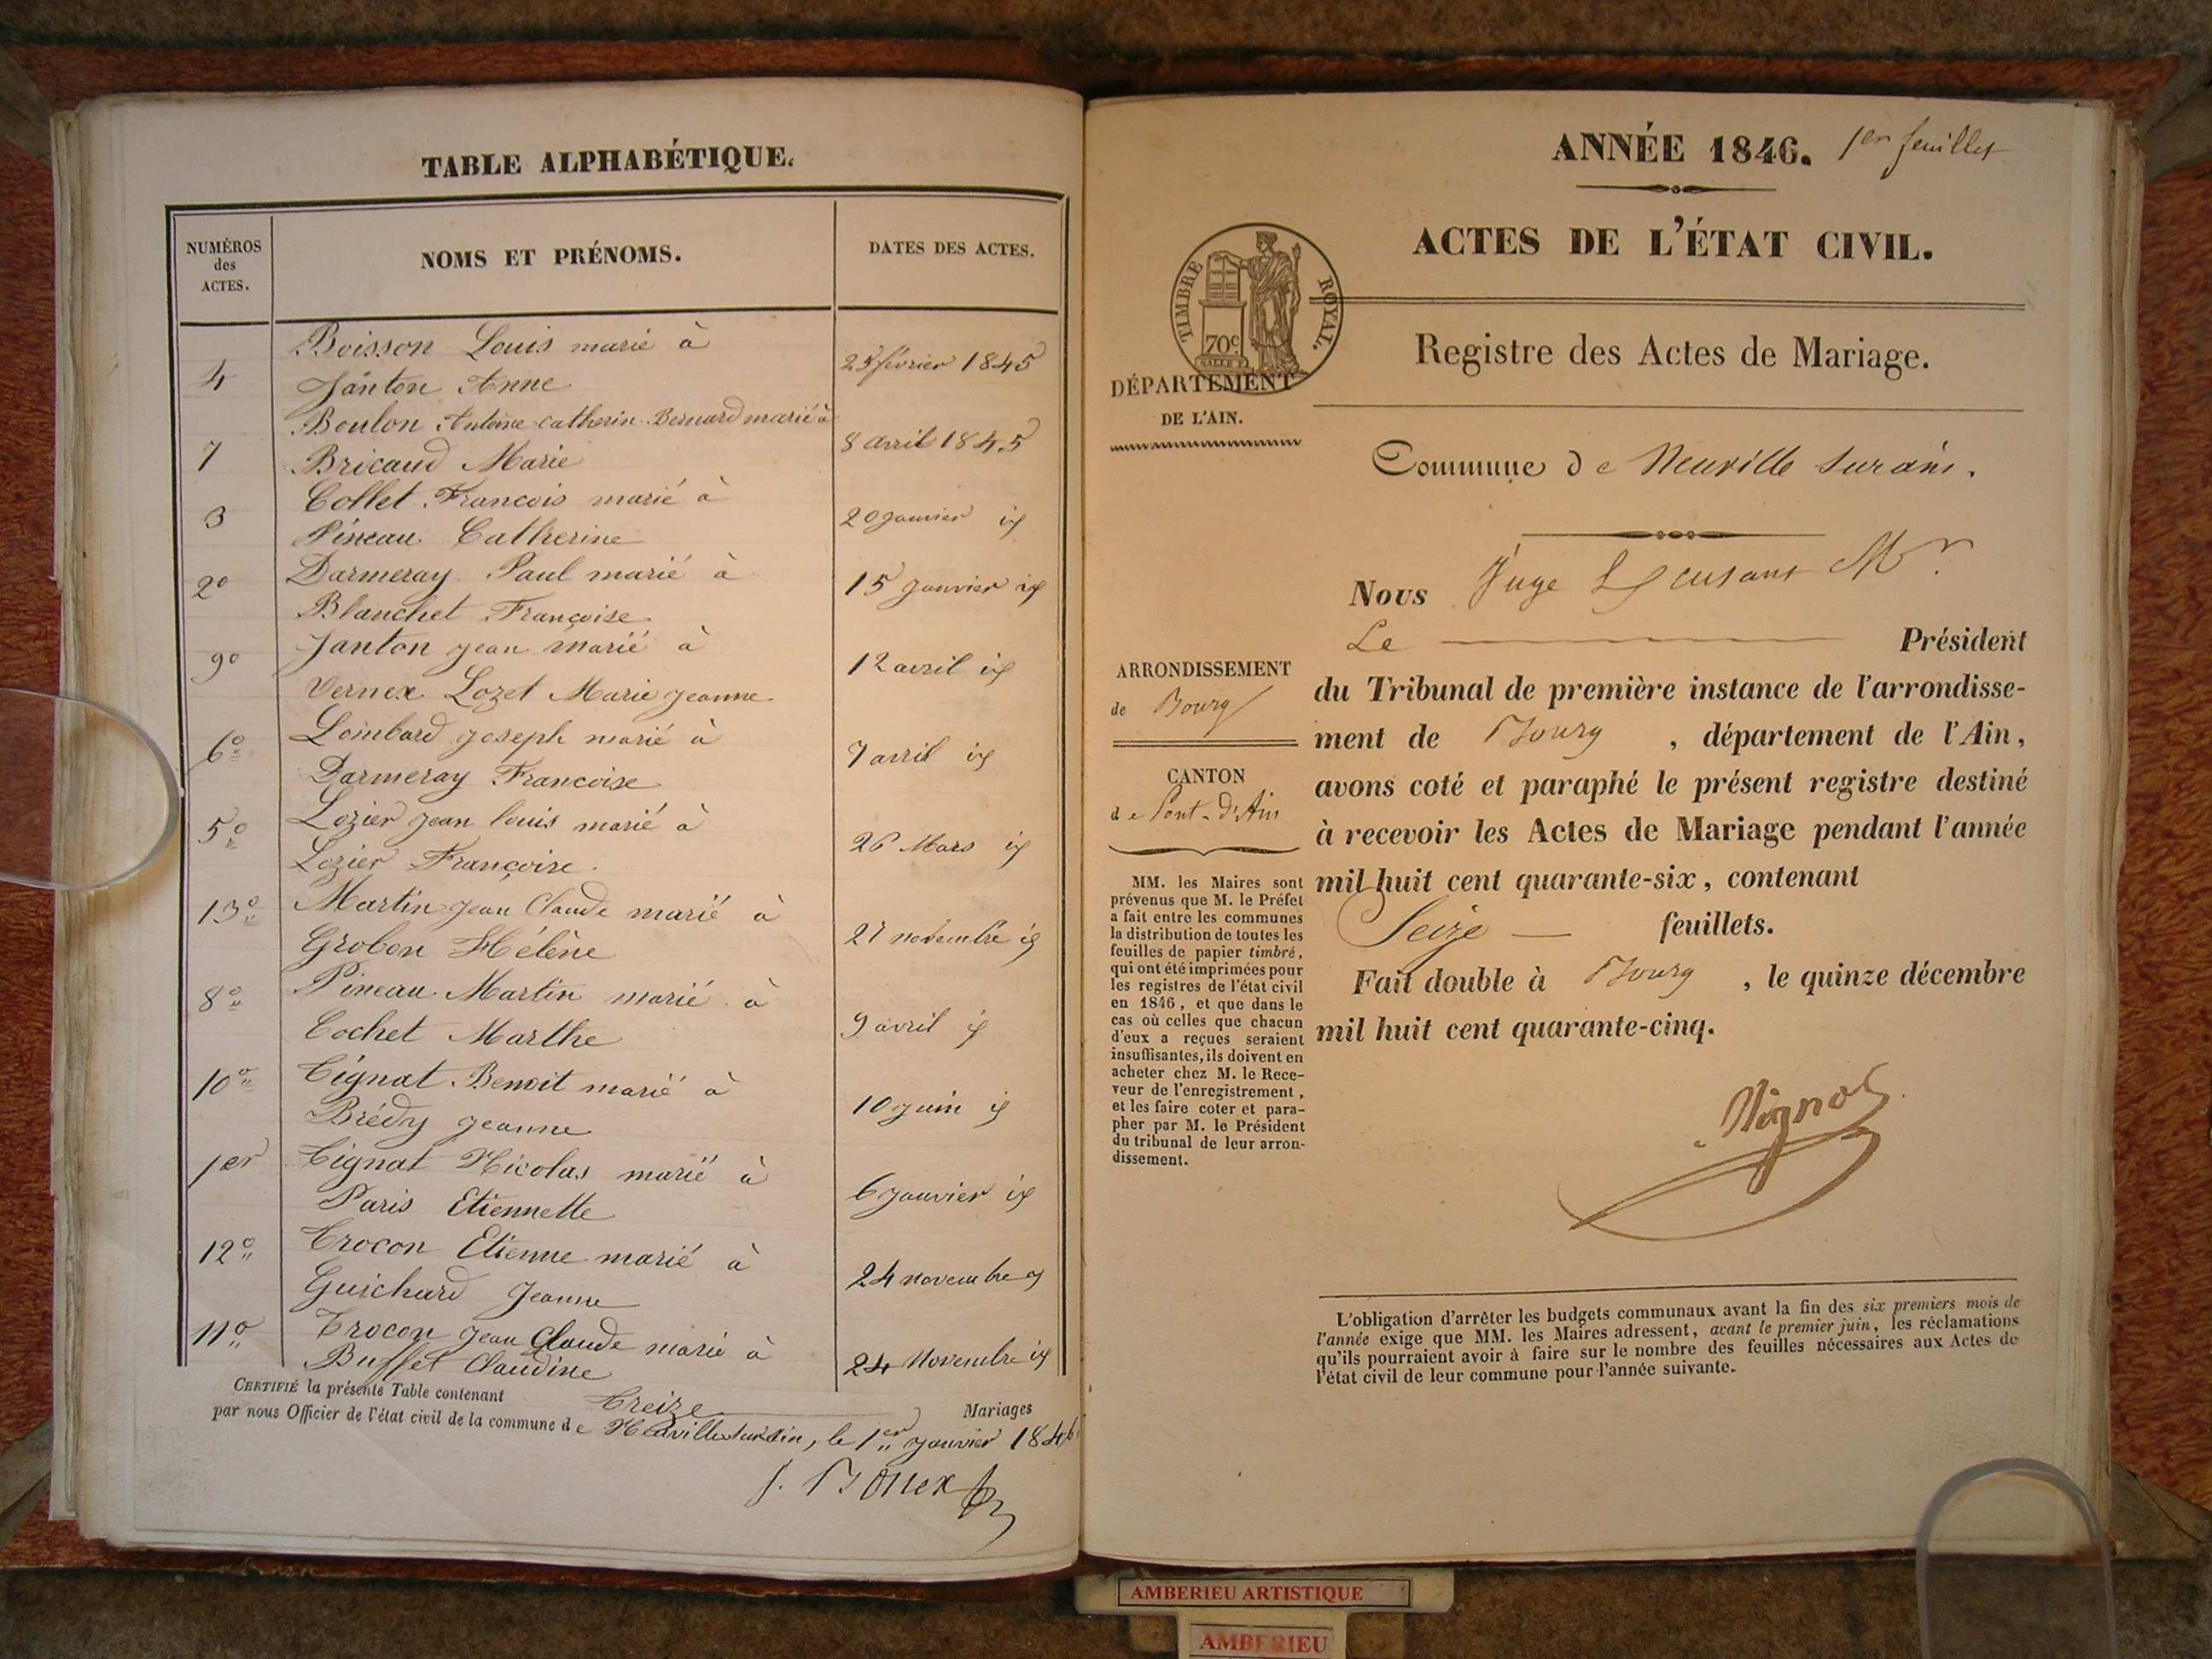 TABLE ALPHABÉTIQUE.
NUMÉROS des ACTES.
NOMS ET PRÉNOMS.
DATES DES ACTES.
Boisson Louis marié à
4 Janton Anne 25 février 1845
Boulon Antoine Catherin Bernard marié à
7 Bricaud Marie 8 avril 1845
Collet François marié à
3 Pineau Catherine 20 janvier id
Darmeray Paul marié à
2º Blanchet Françoise 15 janvier id
Janton jean marié à
9º Vernex Lozet Marie jeanne 12 avril id
Lombard joseph marié à
6º Darmeray Françoise 7 avril id
Lozier jean louis marié à
5º Lozier Françoise 26 Mars id
Martin jean Claude marié à
13º Grobon Hélène 27 novembre id
Pineau Martin marié à
8º Cochet Marthe 9 avril id
Tignat Benoit marié à
10º Brédy jeanne 10 juin id
Tignat Nicolas marié à
1er Paris Etiennette 6 janvier id
Trocon Etienne marié à
12º Guichard Jeanne 24 novembre id
Trocon jean Claude marié à
11º Buffet Claudine 24 Novembre id
CERTIFIÉ la présente Table contenant Treize Mariages
par nous Officier de l'état civil de la commune de Neuville sur Ain, le 1er janvier 1846
ANNÉE 1846. 1er feuillet
ACTES DE L'ÉTAT CIVIL.
TIMBRE ROYAL.
70c
DÉPARTEMENT
DE L'AIN.
Registre des Actes de Mariage.
Commune de Neuville sur ain.
Nous Juge
Le Président
ARRONDISSEMENT
de Bourg
CANTON
de Pont-d'Ain
du Tribunal de première instance de l'arrondisse-
ment de Bourg, département de l'Ain,
avons coté et paraphé le présent registre destiné
à recevoir les Actes de Mariage pendant l'année
mil huit cent quarante-six, contenant
Seize feuillets.
Fait double à Bourg, le quinze décembre
mil huit cent quarante-cinq.
MM. les Maires sont
prévenus que M. le Préfet
a fait entre les communes
la distribution de toutes les
feuilles de papier timbré,
qui ont été imprimées pour
les registres de l'état civil
en 1846, et que dans le
cas où celles que chacun
d'eux a reçues seraient
insuffisantes, ils doivent en
acheter chez M. le Rece-
veur de l'enregistrement,
et les faire coter et para-
pher par M. le Président
du tribunal de leur arron-
dissement.
L'obligation d'arrêter les budgets communaux avant la fin des six premiers mois de
l'année exige que MM. les Maires adressent, avant le premier juin, les réclamations
qu'ils pourraient avoir à faire sur le nombre des feuilles nécessaires aux Actes de
l'état civil de leur commune pour l'année suivante.
AMBERIEU ARTISTIQUE
AMBERIEU